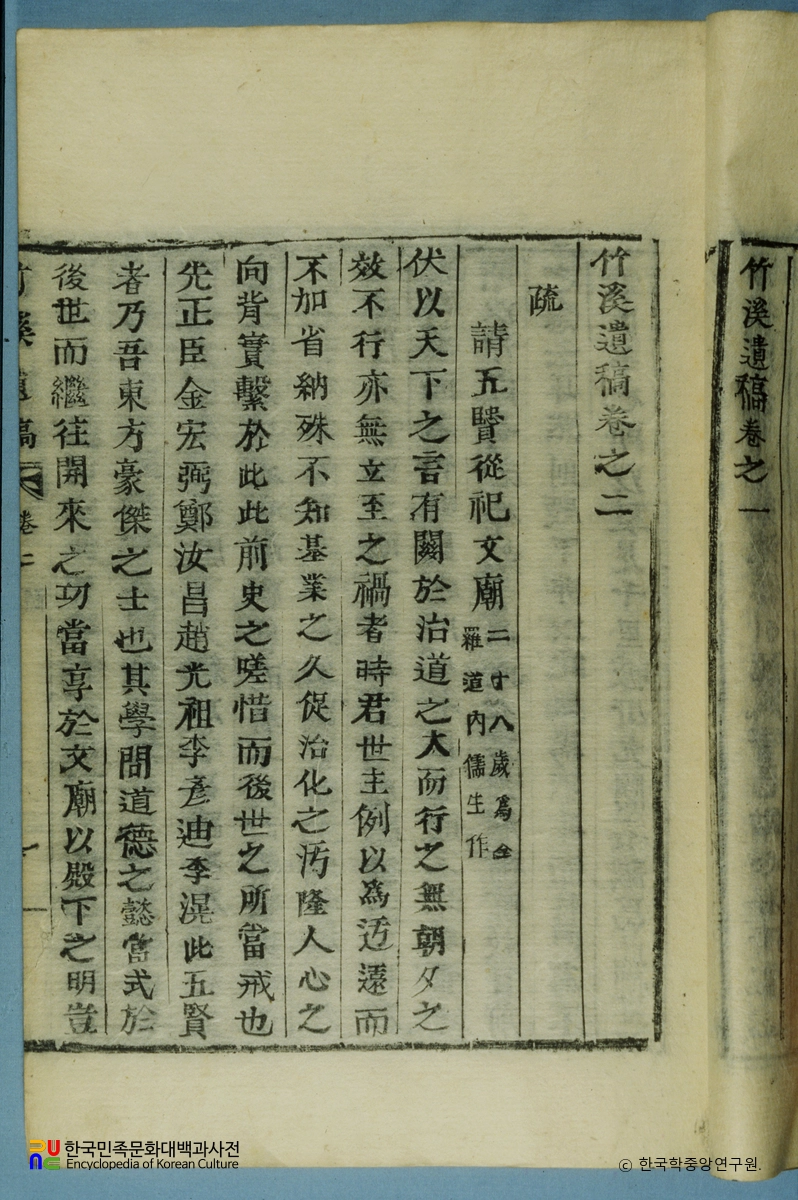 竹溪遺稿卷之一
竹溪遺稿卷之二
疏
請五賢從祀文廟二十八歲爲全
羅道內儒生作
伏以天下之言有關於治道之大而行之無朝夕之
效不行亦無立至之禍者時君世主例以爲迃遠而
不加省納殊不知基業之久促治化之汚隆人心之
向背實繫於此此前史之嗟惜而後世之所當戒也
先正臣金宏弼鄭汝昌趙光祖李彥迪李滉此五賢
者乃吾東方豪傑之士也其學問道德之懿當式於
後世而繼往開來之功當享於文廟以殿下之明豈
竹溪遺稿 卷二
한국민족문화대백과사전
Encyclopedia of Korean Culture
© 한국학중앙연구원.